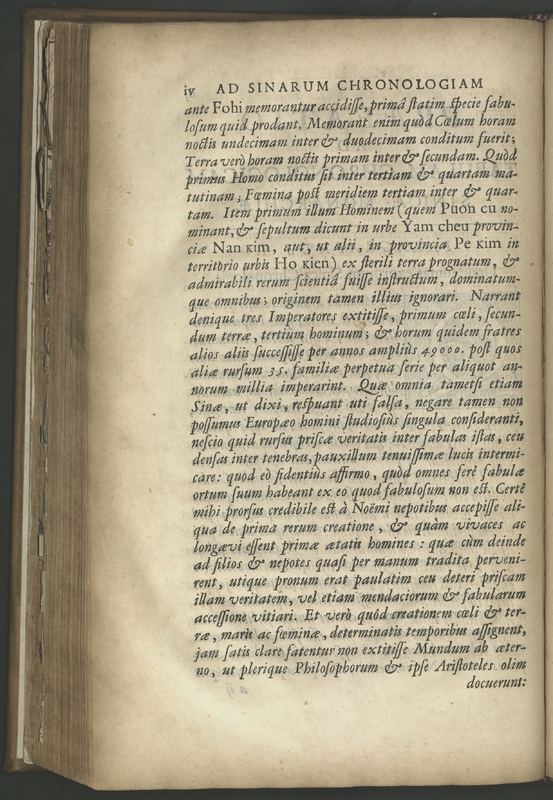 iv AD SINARUM CHRONOLOGIAM
ante Fohi memorantur accidisse, primâ statim specie fabu-
losum quid prodant. Memorant enim quòd Cœlum horam
noctis undecimam inter & duodecimam conditum fuerit;
Terra verò horam noctis primam inter & secundam. Quòd
primus Homo conditus sit inter tertiam & quartam ma-
tutinam; Fœmina post meridiem tertiam inter & quar-
tam. Item primum illum Hominem (quem Puon cu no-
minant, & sepultum dicunt in urbe Yam cheu provin-
ciæ Nan kim, aut, ut alii, in provincia Pe kim in
territorio urbis Ho kien) ex sterili terra prognatum, &
admirabili rerum scientiâ fuisse instructum, dominatum-
que omnibus; originem tamen illius ignorari. Narrant
denique tres Imperatores extitisse, primum cœli, secun-
dum terræ, tertium hominum; & horum quidem fratres
alios aliis successisse per annos ampliùs 49000. post quos
aliæ rursum 35. familiæ perpetua serie per aliquot an-
norum millia imperarint. Quæ omnia tametsi etiam
Sinæ, ut dixi, respuant uti falsa, negare tamen non
possumus Europæo homini studiosiùs singula consideranti,
nescio quid rursus priscæ veritatis inter fabulas istas, ceu
densas inter tenebras, pauxillum tenuissimæ lucis intermi-
care: quod eò fidentiùs affirmo, quòd omnes ferè fabulæ
ortum suum habeant ex eo quod fabulosum non est. Certè
mihi prorsus credibile est à Noëmi nepotibus accepisse ali-
qua de prima rerum creatione, & quàm vivaces ac
longævi essent primæ ætatis homines: quæ cùm deinde
ad filios & nepotes quasi per manum tradita perveni-
rent, utique pronum erat paulatim ceu deteri priscam
illam veritatem, vel etiam mendaciorum & fabularum
accessione vitiari. Et verò quòd creationem cœli & ter-
ræ, maris ac fœminæ, determinatis temporibus assignent,
jam satis clare fatentur non extitisse Mundum ab æter-
no, ut plerique Philosophorum & ipse Aristoteles olim
docuerunt: